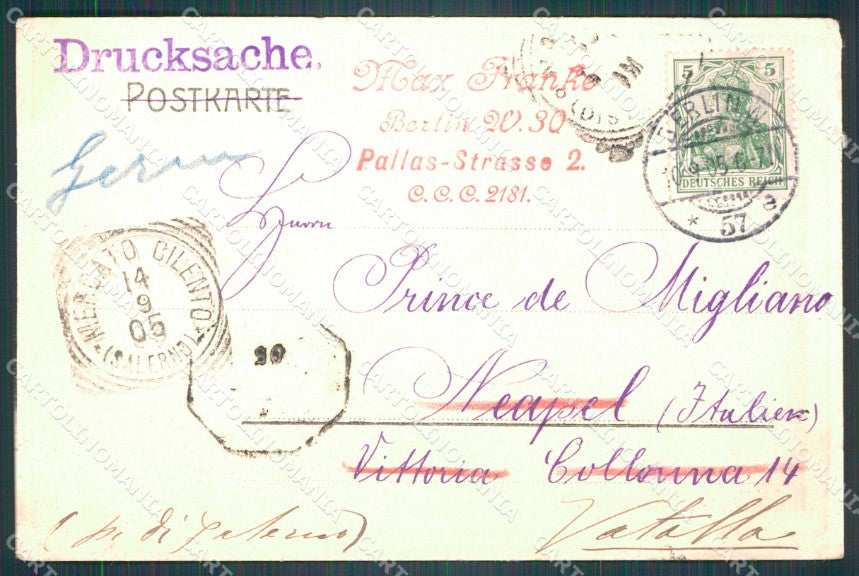 Drucksache.
POSTKARTE
Max Franke
Berlin W. 30
Pallas-Strasse 2.
C.C.C. 2181.
5 5
DEUTSCHES REICH
BERLIN W.
* 57 e
Herrn
MERCATO CILENTO
14
9
05
(SALERNO)
Prince de Migliano
Neapel (Italien)
Vittoria Collonna 14
Vatolla
CARTOLINOMANIA